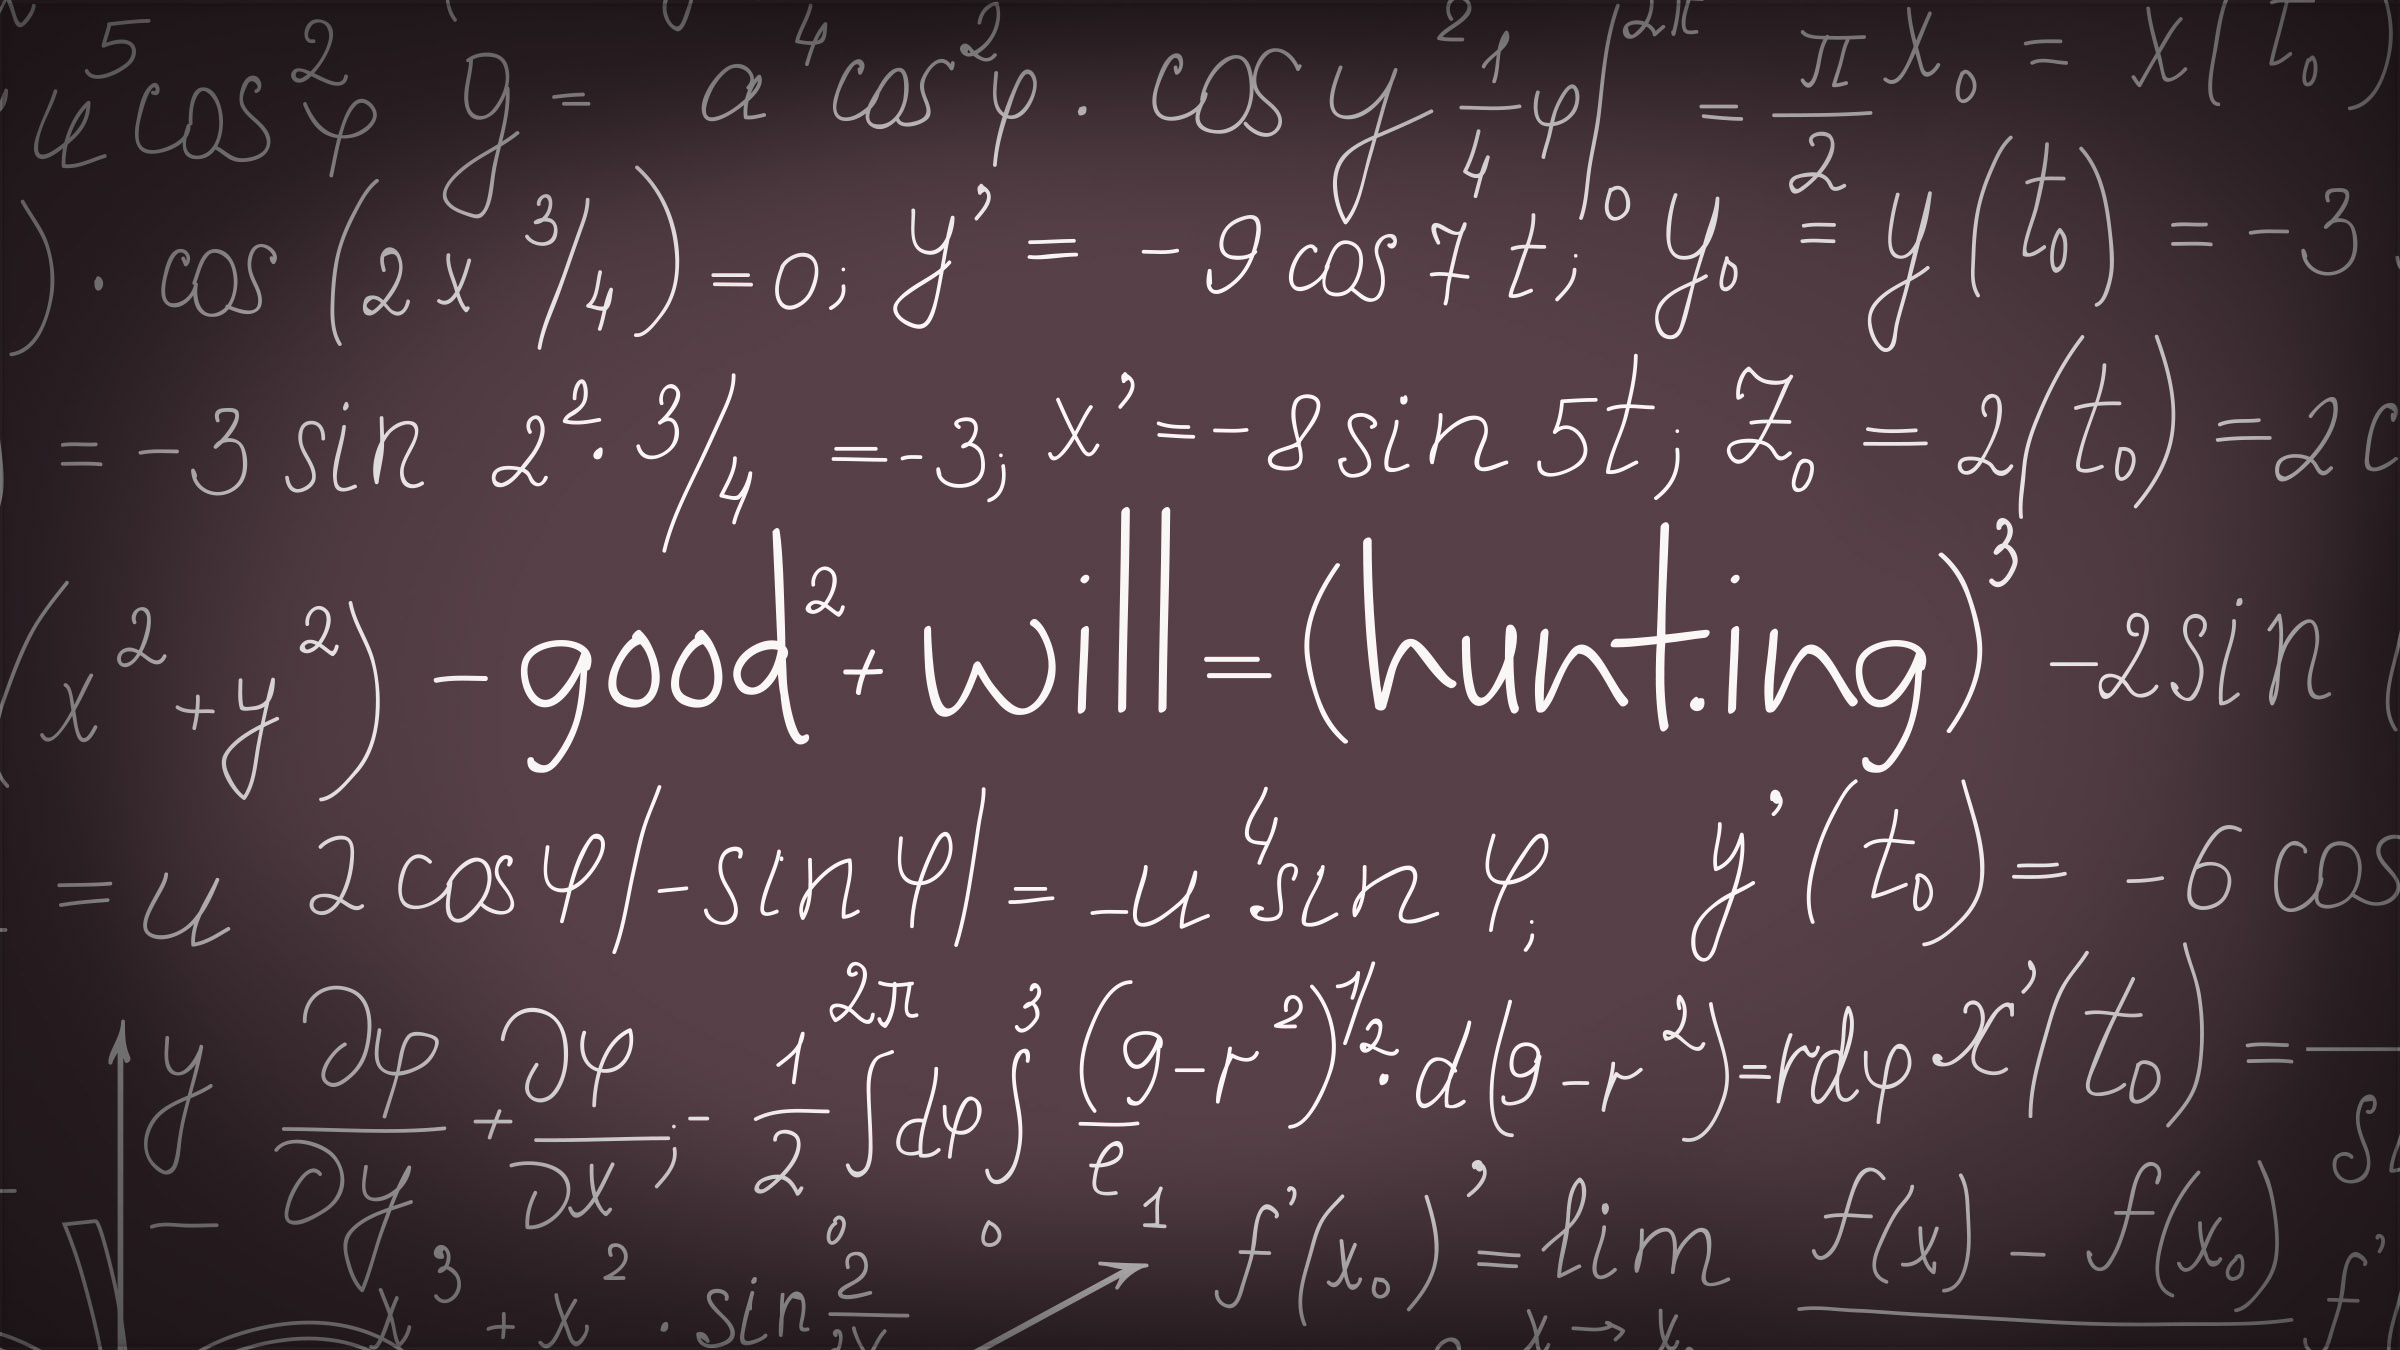 5 u cos² φ y = a⁴ cos² φ · cos y 2 1/4 φ |₀ 2π = π/2 x₀ = x(t₀)
) · cos (2x ³/₄) = 0; y' = -9 cos 7 t; y₀ = y(t₀) = -3
= -3 sin 2² · ³/₄ = -3; x' = -8 sin 5t; Z₀ = 2(t₀) = 2c
(x² + y²) - good² + will = (hunt.ing)³ - 2 sin (
= u 2 cos φ/-sin φ/ = -u⁴ sin φ; y'(t₀) = -6 cos
y ∂φ/∂y + ∂φ/∂x; - 1/2 ∫₀ 2π dφ ∫₀ 3 (9-r²)^½/e · d(9-r²) = rdφ x'(t₀) =
x³ + x² · sin 2 1 f'(x₀)' = lim x → x f(x) - f(x₀) f'